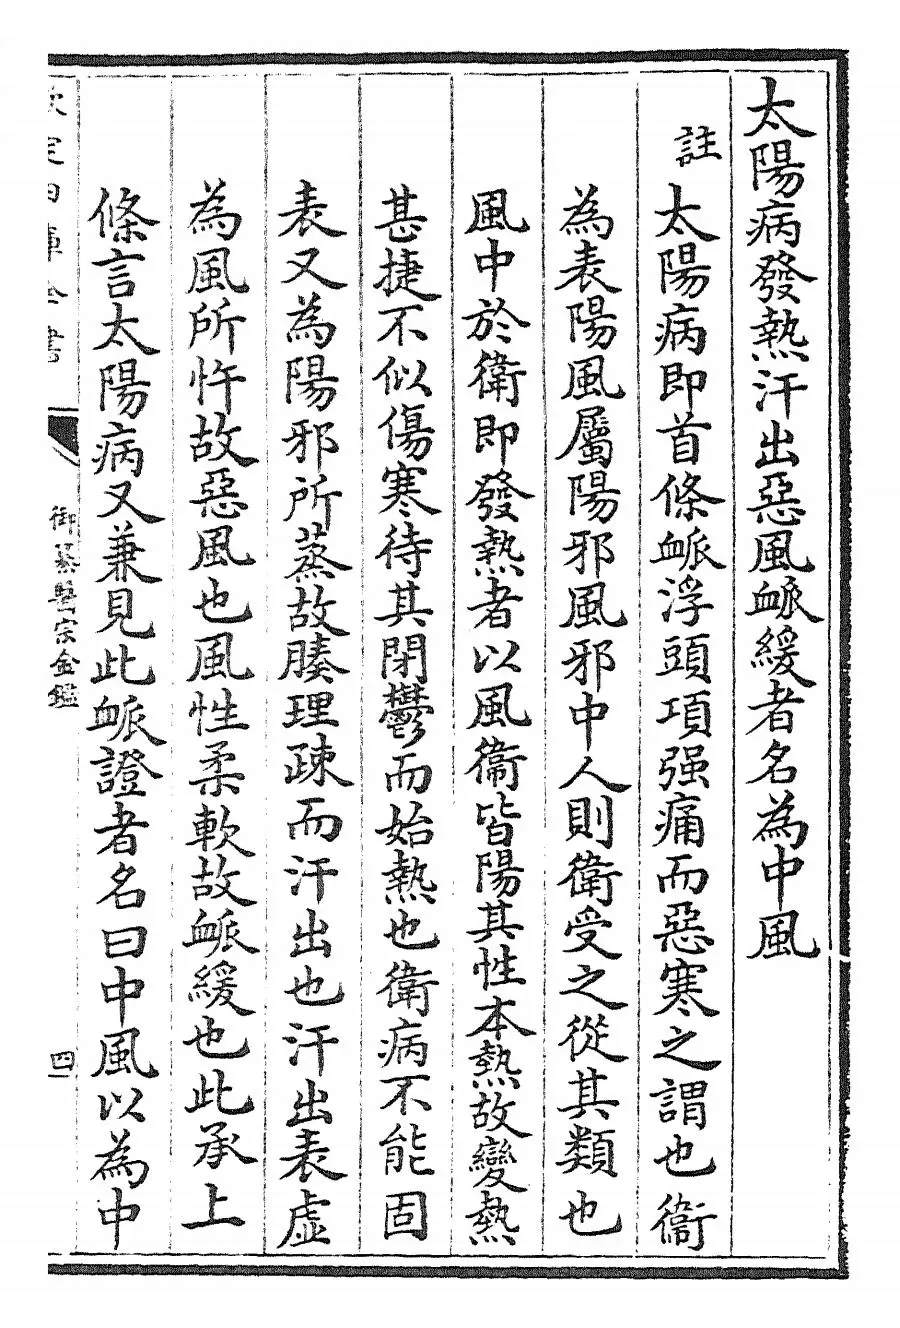 太陽病發熱汗出惡風衇緩者名為中風
註
太陽病即首條衇浮頭項强痛而惡寒之謂也衞
為表陽風屬陽邪風邪中人則衛受之從其類也
風中於衛即發熱者以風衞皆陽其性本熱故變熱
甚捷不似傷寒待其閉鬱而始熱也衛病不能固
表又為陽邪所蒸故腠理疎而汗出也汗出表虛
為風所忤故惡風也風性柔軟故衇緩也此承上
條言太陽病又兼見此衇證者名曰中風以為中
欽定四庫全書
御纂醫宗金鑑
四